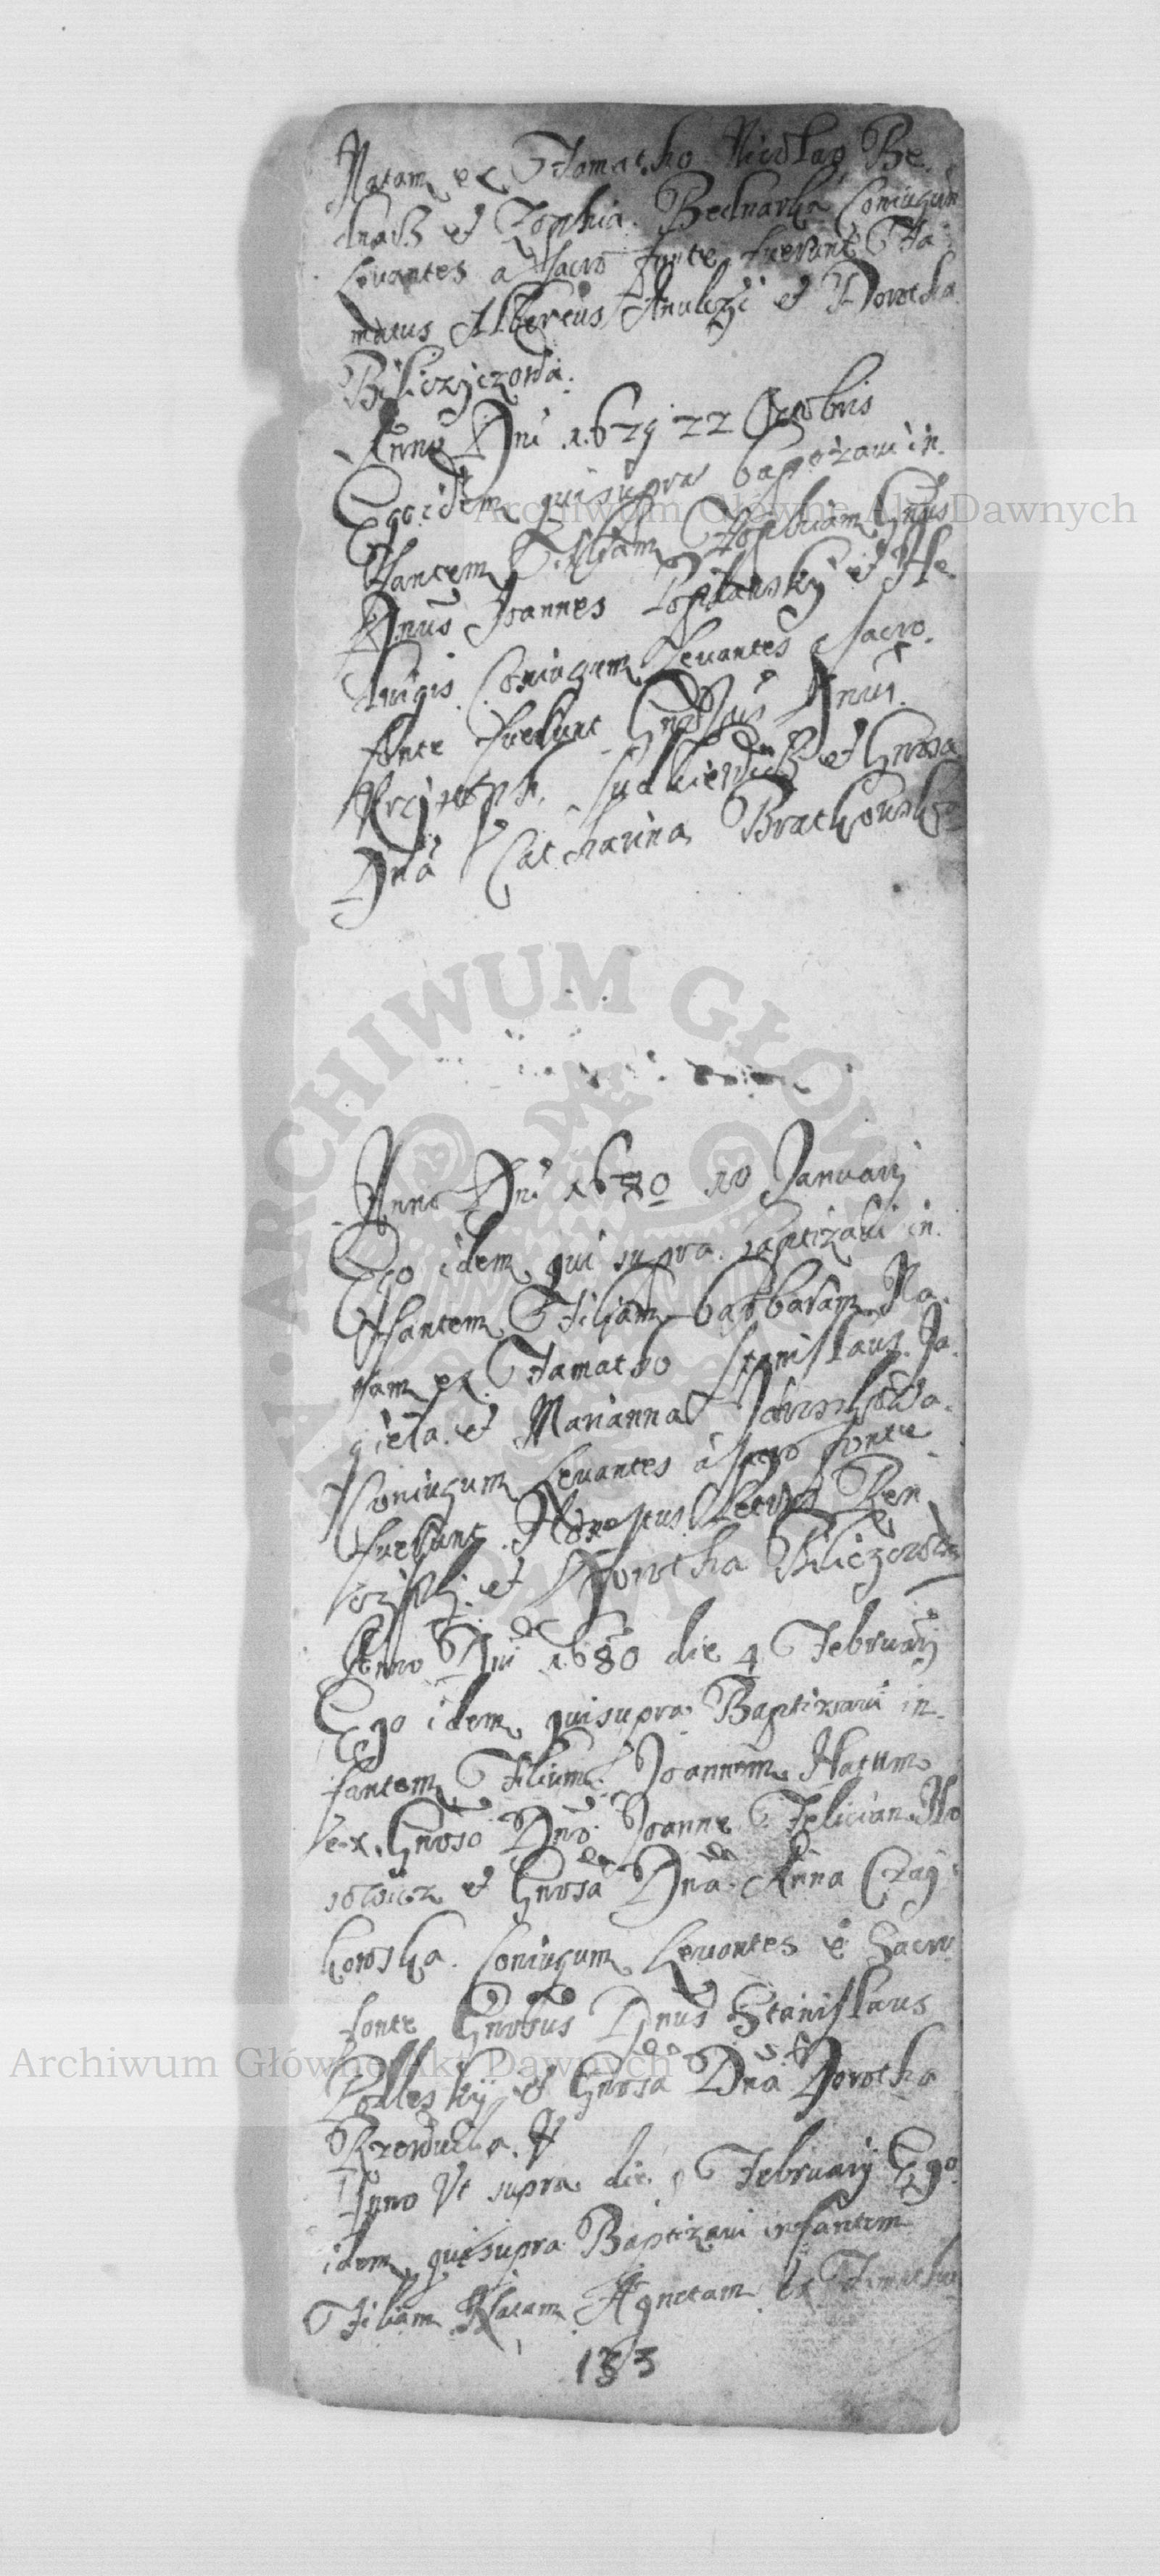 Natam ex Famatho Nicolao Be
dnarz et Zophia Bednarka Coniugum
Levantes a sacro fonte fuerunt Fa
matus Albertus et Dorotha
Biliczyczowa.
Anno Dni 1679 22 Octobris
Ego idem qui supra baptizavi in
fantem Filiam Zophiam Gnus
Dnus Joannes et He
dvigis Coniugum Levantes e sacro
fonte fuerunt Gnosus Dnus
et Gnosa
Dna Catharina Bratkowska
Anno Dni 1680 10 Januarij
Ego idem qui supra baptizavi in
fantem Filiam barbaram Na
tam ex Famatho Stanislaus Ja
giela et Marianna
Coniugum Levantes a sacro fonte
fuerunt Honestus
et Dorotha Biliczczowa
Anno Dni 1680 die 4 Februarij
Ego idem qui supra Baptizavi in
fantem Filium Joannem Natum
ex Gnoso Dno Joanne Felician No
sowicz et Gnosa Dna Anna Czay
kowska Coniugum Levantes e Sacro
fonte Gnosus Dnus Stanislaus
et Gnosa Dna Dorotha
Anno Vt supra die 9 Februarij Ego
idem qui supra Baptizavi infantem
Filiam Natam Agnetam ex Famatho
133
Archiwum Główne Akt Dawnych
ARCHIWUM GŁÓWNE
Archiwum Główne Akt Dawnych